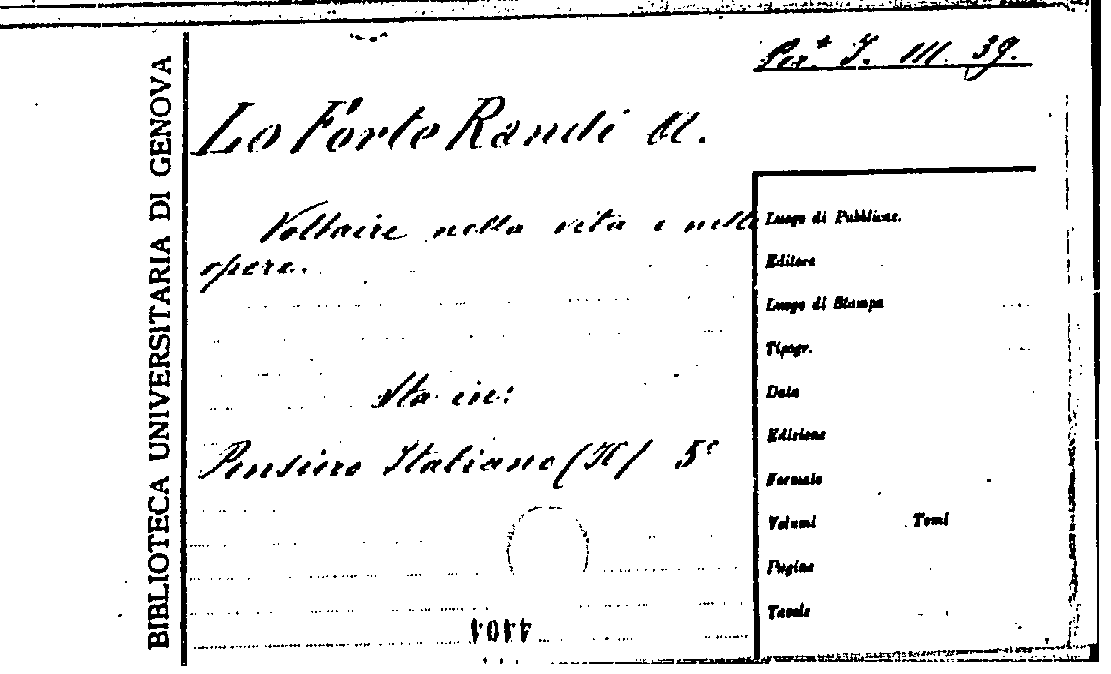 Per.* I. III. 39.
Lo Forte Randi A.
Voltaire nella vita e nelle
opere.
Sta in:
Pensiero Italiano (Il) 5°
BIBLIOTECA UNIVERSITARIA DI GENOVA
Luogo di Pubblicaz.
Editore
Luogo di Stampa
Tipogr.
Data
Edizione
Formato
Volumi Tomi
Pagine
Tavole
4404